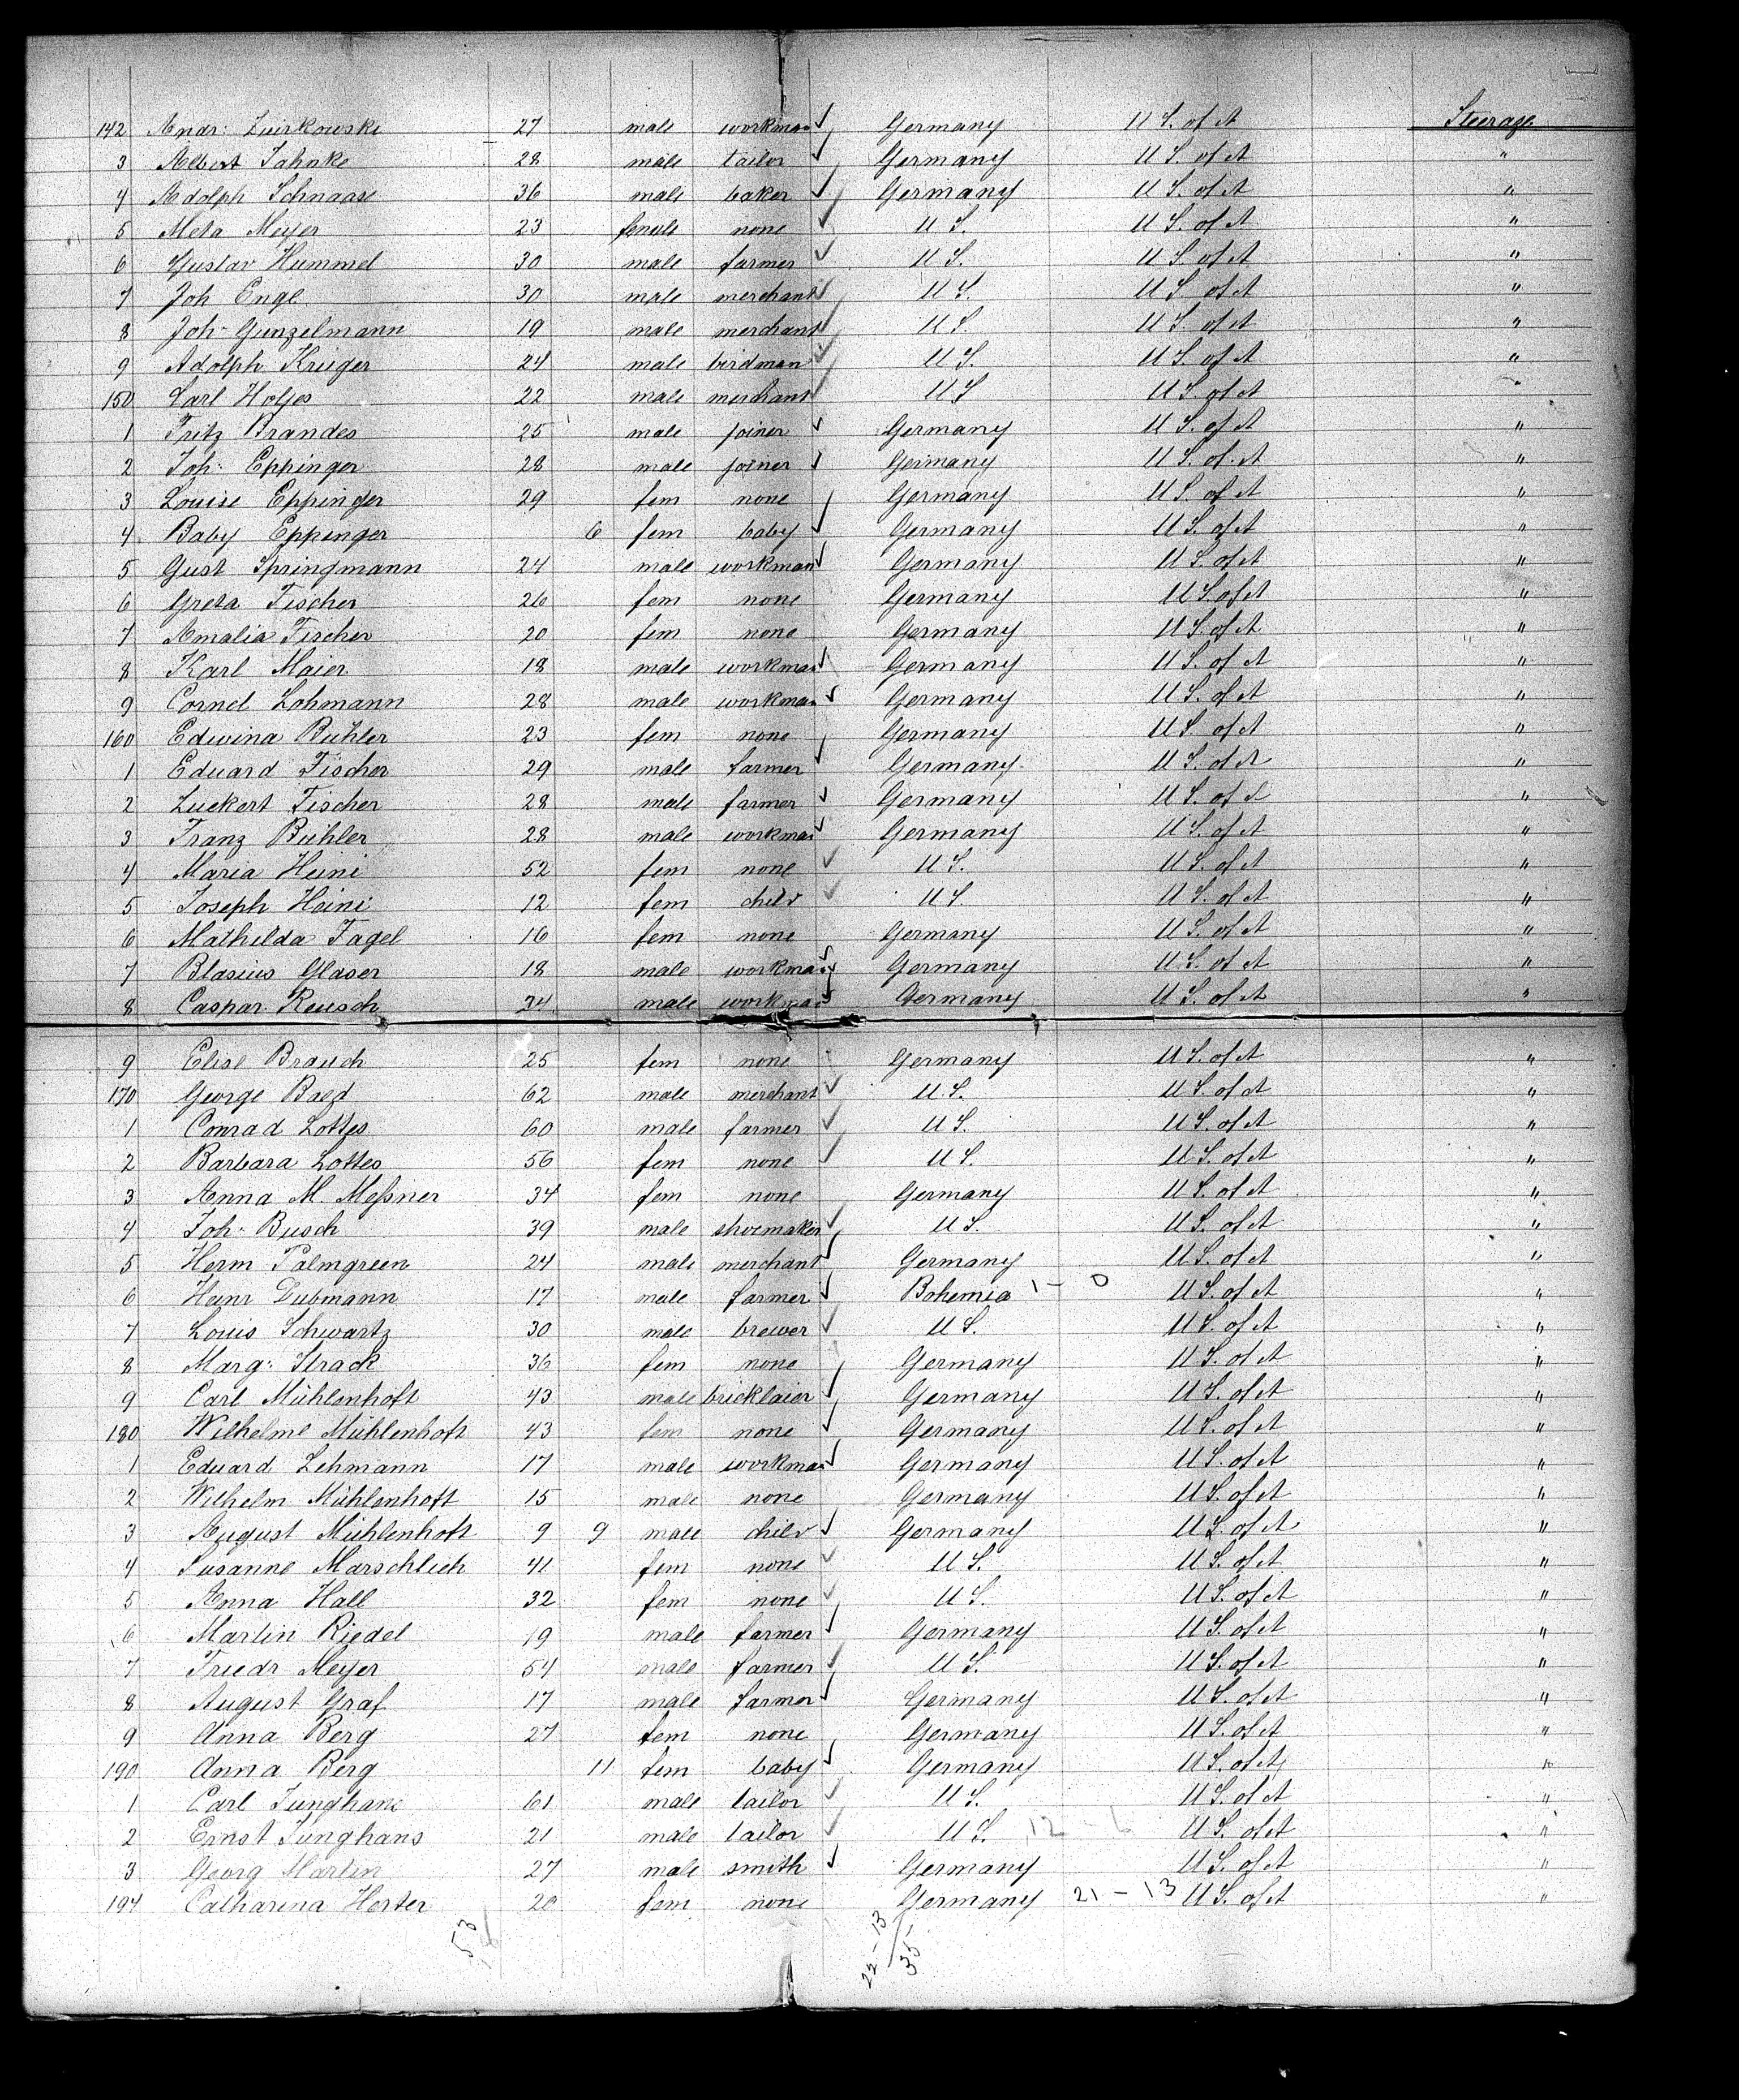 142 Andr: Zuirkowski 27 male workman Germany U S. of A Steerage
3 Albert Jahnke 28 male tailor Germany U S. of A "
4 Adolph Schnaase 36 male baker Germany U S. of A "
5 Meta Meyer 23 female none U S. U S. of A "
6 Gustav Hummel 30 male farmer U S. U S. of A "
7 Joh Engl 30 male merchant U S. U S. of A "
8 Joh: Gunzelmann 19 male merchant U S. U S. of A "
9 Adolph Kruger 24 male birdman U S. U S. of A "
150 Carl Holjes 22 male merchant U S U S. of A "
1 Fritz Brandes 25 male joiner Germany U S. of A "
2 Joh: Eppinger 28 male joiner Germany U S. of A "
3 Louise Eppinger 29 fem none Germany U S. of A "
4 Baby Eppinger 6 fem baby Germany U S. of A "
5 Gust Springmann 24 male workman Germany U S. of A "
6 Greta Fischer 26 fem none Germany U S. of A "
7 Amalia Fischer 20 fem none Germany U S. of A "
8 Karl Maier 18 male workman Germany U S. of A "
9 Cornel Lohmann 28 male workman Germany U S. of A "
160 Edwina Buhler 23 fem none Germany U S. of A "
1 Eduard Fischer 29 male farmer Germany U S. of A "
2 Luckert Fischer 28 male farmer Germany U S. of A "
3 Franz Bühler 28 male workman Germany U S. of A "
4 Maria Heini 52 fem none U S. U S. of A "
5 Joseph Heini 12 fem child U S U S. of A "
6 Mathilda Fagel 16 fem none Germany U S. of A "
7 Blasius Glaser 18 male workman Germany U S. of A "
8 Caspar Reusch 24 male workman Germany U S. of A "
9 Elise Brauch 25 fem none Germany U S. of A "
170 George Baez 62 male merchant U S. U S. of A "
1 Conrad Lottes 60 male farmer U S. U S. of A "
2 Barbara Lottes 56 fem none U S. U S. of A "
3 Anna M. Meßner 34 fem none Germany U S. of A "
4 Joh: Busch 39 male shoemaker U S. U S. of A "
5 Herm Palmgreen 24 male merchant Germany U S. of A "
6 Heinr Dubmann 17 male farmer Bohemia 1 - 0 U S. of A "
7 Louis Schwartz 30 male brewer U S. U S. of A "
8 Marg: Strack 36 fem none Germany U S. of A "
9 Carl Mühlenhoft 43 male bricklaier Germany U S. of A "
180 Wilhelme Mühlenhoft 43 fem none Germany U S. of A "
1 Eduard Lehmann 17 male workman Germany U S. of A "
2 Wilhelm Mühlenhoft 15 male none Germany U S. of A "
3 August Mühlenhoft 9 9 male child Germany U S. of A "
4 Susanne Marschlich 41 fem none U S. U S. of A "
5 Anna Hall 32 fem none U S. U S. of A "
6 Martin Riedel 19 male farmer Germany U S. of A "
7 Friedr Meyer 54 male farmer U S. U S. of A "
8 August Graf 17 male farmer Germany U S. of A "
9 Anna Berg 27 fem none Germany U S. of A "
190 Anna Berg 11 fem baby Germany U S. of A "
1 Carl Junghans 61 male tailor U S. U S. of A "
2 Ernst Junghans 21 male tailor U S. U S. of A "
3 Georg Martin 27 male smith Germany U S. of A "
194 Catharina Horter 20 fem none Germany 21 - 13 U S. of A "
53 22 - 13
35